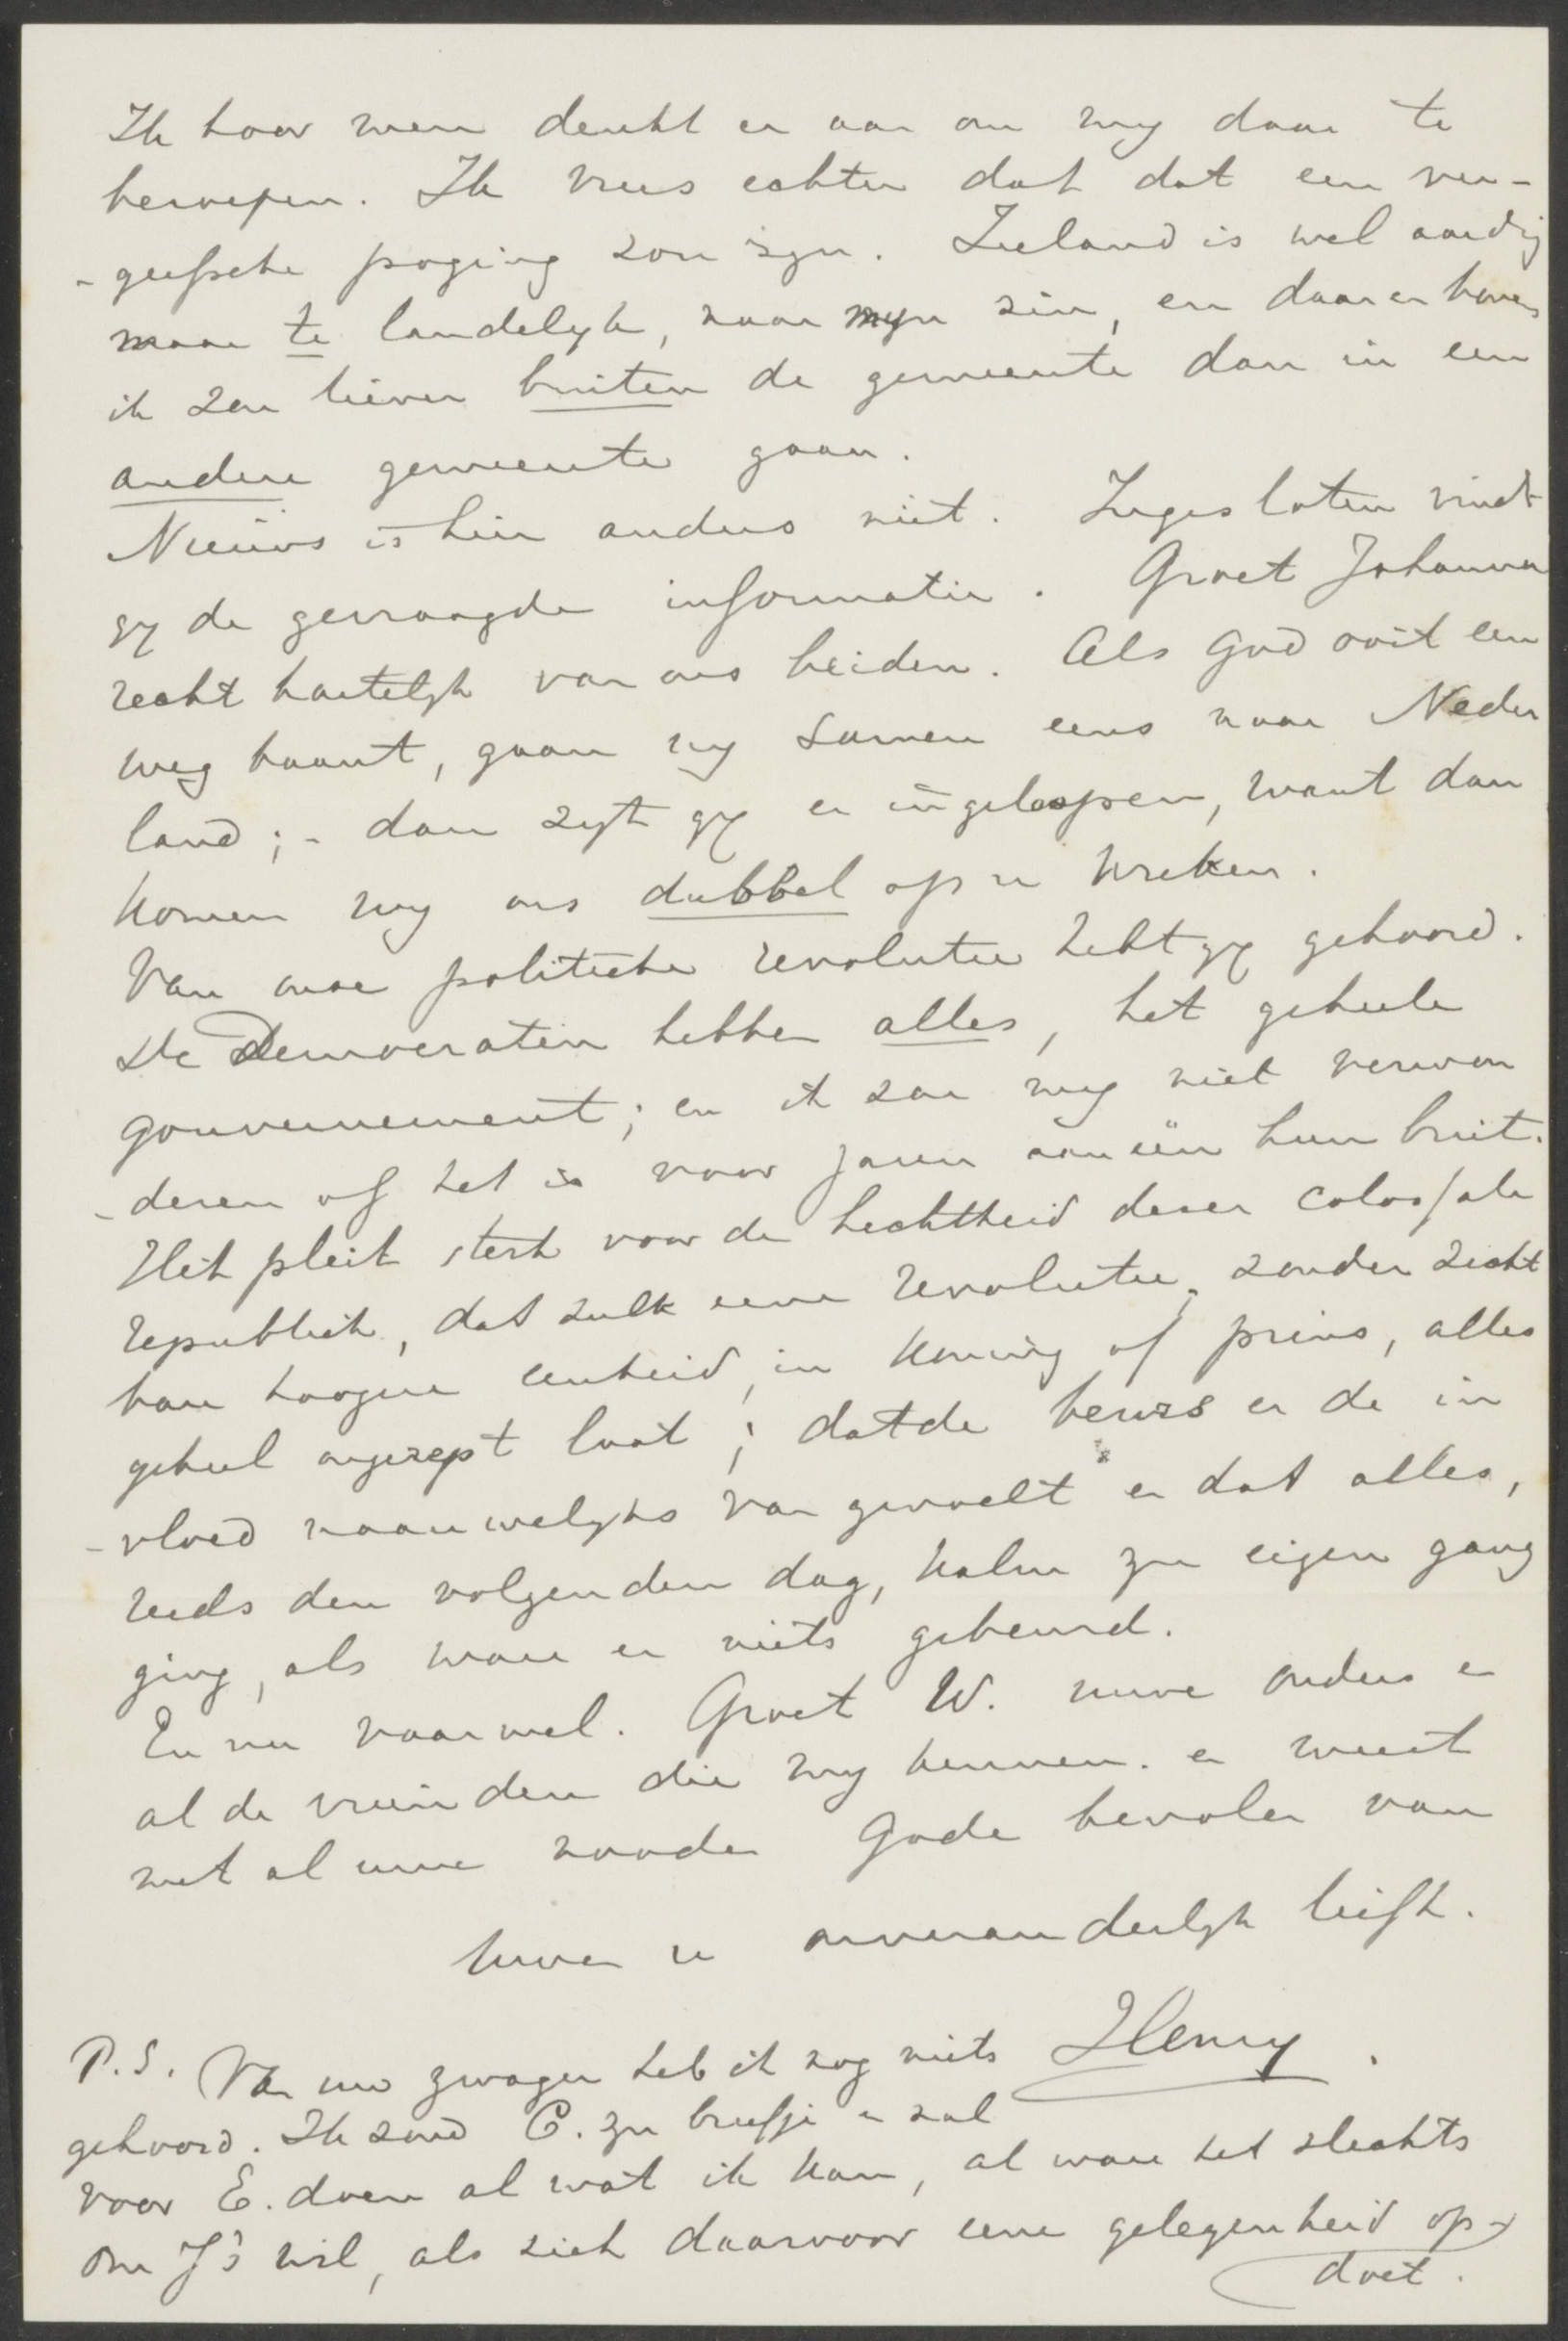 Ik hoor men denkt er aan om my daar te
beroepen. Ik vrees echter dat dat een ver-
-geefsche poging zou zyn. Zeeland is wel aardig
maar te landelyk, naar myn zin, en daarenboven
ik zou liever buiten de gemeente dan in een
andere gemeente gaan.
Nieuws is hier anders niet. Ingesloten vindt
gy de gevraagde informatie. Groet Johanna
recht hartelyk van ons beiden. Als God ooit een
weg baant, gaan wy samen eens naar Neder
land; - dan zyt gy er ingeloopen, want dan
komen wy ons dubbel op u wreken.
Van onze politieke revolutie hebt gy gehoord.
De Democraten hebben alles, het geheele
gouvernement; en ik zou my niet verwon
-deren of het is voor jaren aanéén hun buit.
Het pleit sterk voor de hechtheid dezer colossale
republiek, dat zulk eene revolutie, zonder zicht
bare hoogere eenheid, in koning of prins, alles
geheel ongerept laat; dat de beurs er de in
-vloed nauwelyks van gevoelt en dat alles,
reeds den volgenden dag, kalm zyn eigen gang
ging, als ware er niets gebeurd.
En nu vaarwel. Groet W. uwe ouders en
al de vrienden die my kennen. en weest
met al uwe nooden Gode bevolen van
uwen u onveranderlyk liefh.
Henry.
P.S. Van uw zwager heb ik nog niets
gehoord. Ik zond C. zyn briefje en zal
voor E. doen al wat ik kan, al ware het slechts
om J's wil, als zich daarvoor eene gelegenheid op-
doet.